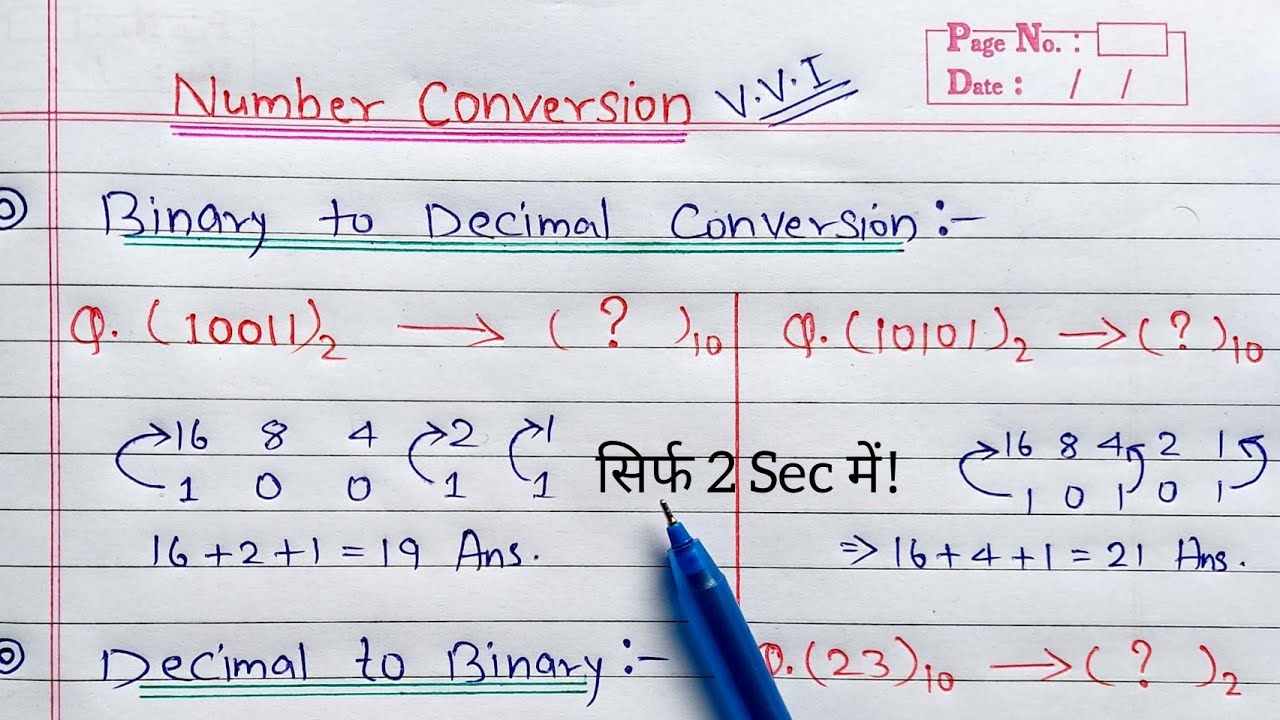 Page No. :
Date : / /
Number Conversion V.V.I
Binary to Decimal Conversion :-
Q. (10011)₂ → ( ? )₁₀
16 8 4 2 1
1 0 0 1 1
16 + 2 + 1 = 19 Ans.
Q. (10101)₂ → ( ? )₁₀
16 8 4 2 1
1 0 1 0 1
⇒ 16 + 4 + 1 = 21 Ans.
सिर्फ 2 Sec में!
Decimal to Binary :-
Q. (23)₁₀ → ( ? )₂